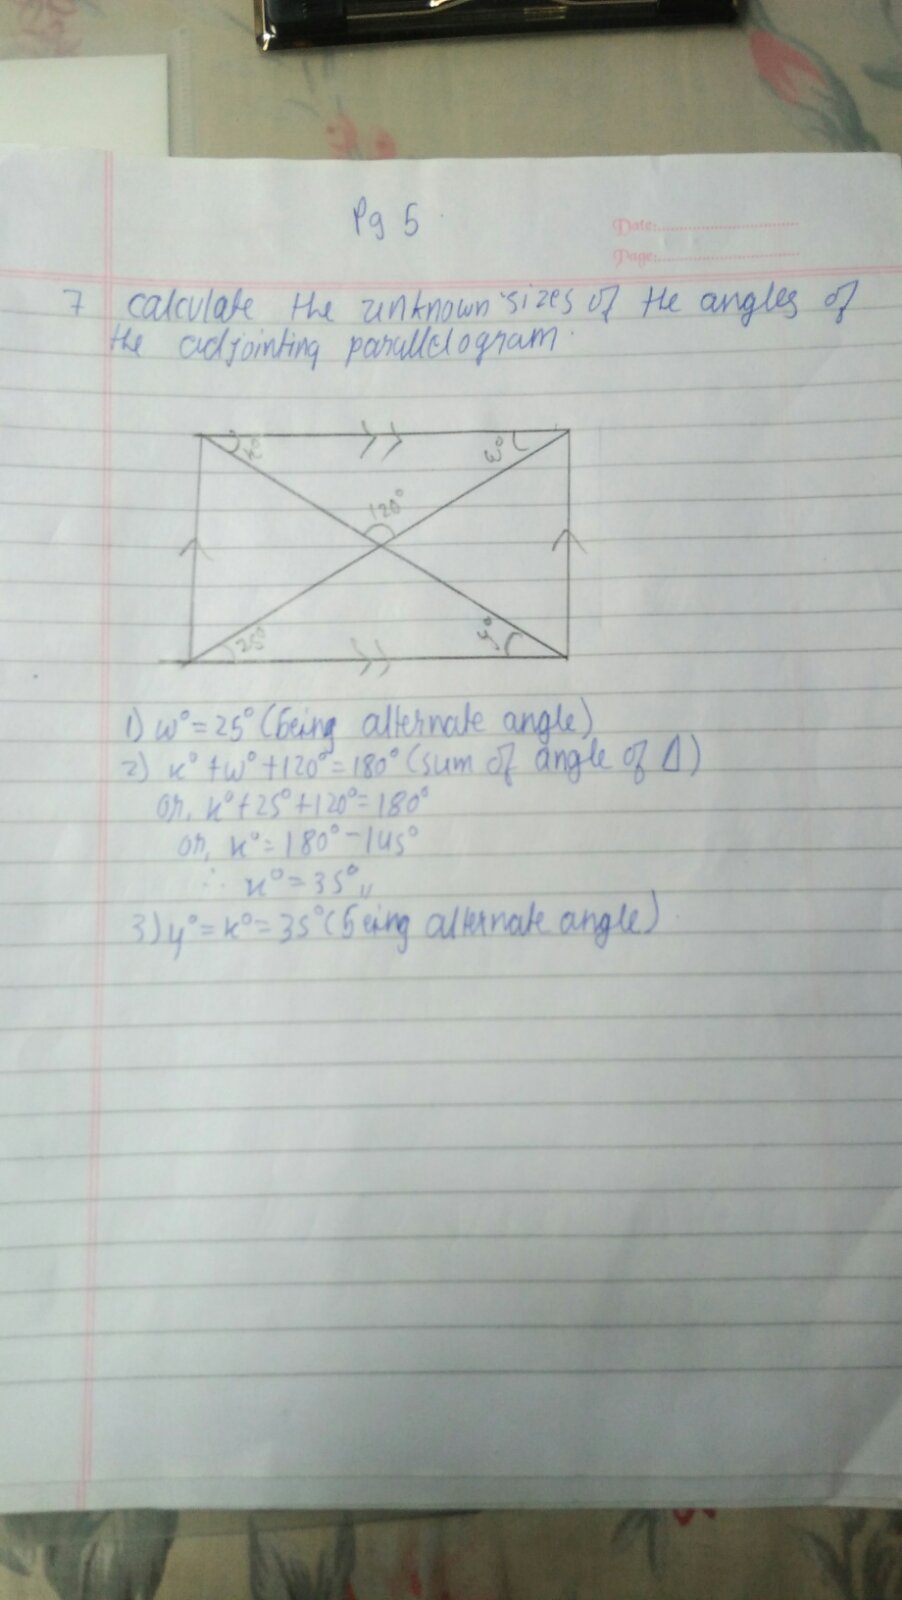 Pg 5
Date:
Page:
7 calculate the unknown sizes of the angles of
the adjointing parallelogram.
x° w°
120°
25° y°
1) w° = 25° (being alternate angle)
2) x° + w° + 120° = 180° (sum of angle of Δ)
or, x° + 25° + 120° = 180°
or, x° = 180° - 145°
∴ x° = 35°,,
3) y° = x° = 35° (being alternate angle)